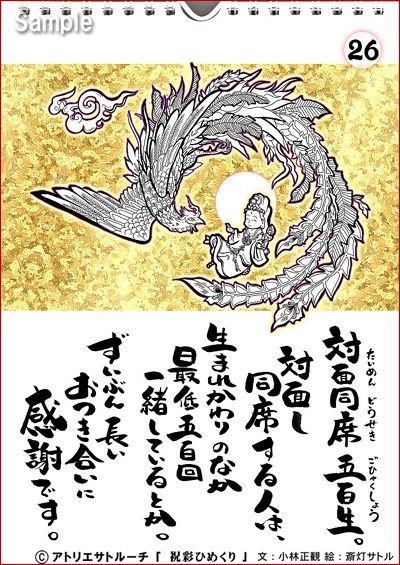 Sample
26
対面同席 五百生。
たいめん どうせき ごひゃくしょう
対面し
同席する人は、
生まれかわりのなか
最低五百回
一緒しているとか。
ずいぶん長い
おつき合いに
感謝です。
©アトリエサトルーチ『 祝彩ひめくり 』 文：小林正観 絵：斎灯サトル